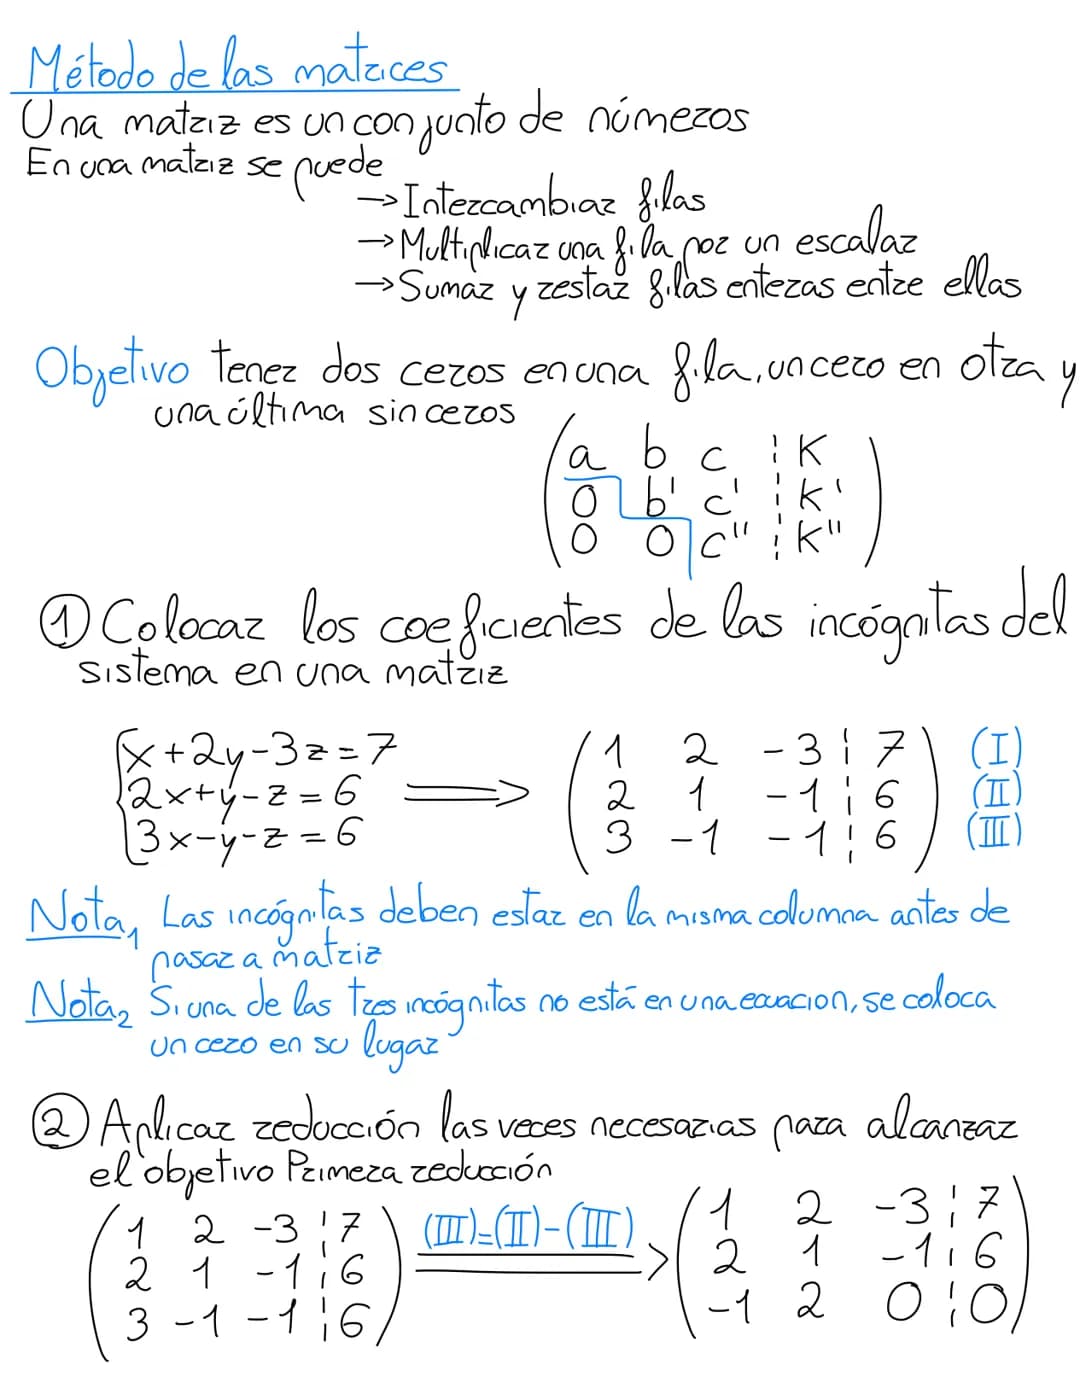 Método de las matrices
Una matriz es un conjunto de números
En una matriz se puede
→ Intercambiar filas
→ Multiplicar una fila por un escalar
→ Sumar y restar filas enteras entre ellas
Objetivo tener dos ceros en una fila, un cero en otra y
una última sin ceros
a b c ¦ K
0 b' c' ¦ K'
0 0 c'' ¦ K''
① Colocar los coeficientes de las incógnitas del
sistema en una matriz
x+2y-3z=7 ⟹ 1 2 -3 ¦ 7 (I)
2x+y-z=6 2 1 -1 ¦ 6 (II)
3x-y-z=6 3 -1 -1 ¦ 6 (III)
Nota₁ Las incógnitas deben estar en la misma columna antes de
pasar a matriz
Nota₂ Si una de las tres incógnitas no está en una ecuacion, se coloca
un cero en su lugar
② Aplicar reducción las veces necesarias para alcanzar
el objetivo Primera reducción
1 2 -3 ¦ 7 (III)=(II)-(III) 1 2 -3 ¦ 7
2 1 -1 ¦ 6 2 1 -1 ¦ 6
3 -1 -1 ¦ 6 -1 2 0 ¦ 0